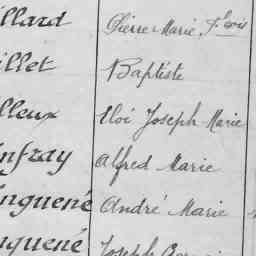 llard Pierre Marie, Fçois
illet Baptiste
lleux Eloi Joseph Marie
nfray Alfred Marie
nguené André Marie
nguené Joseph